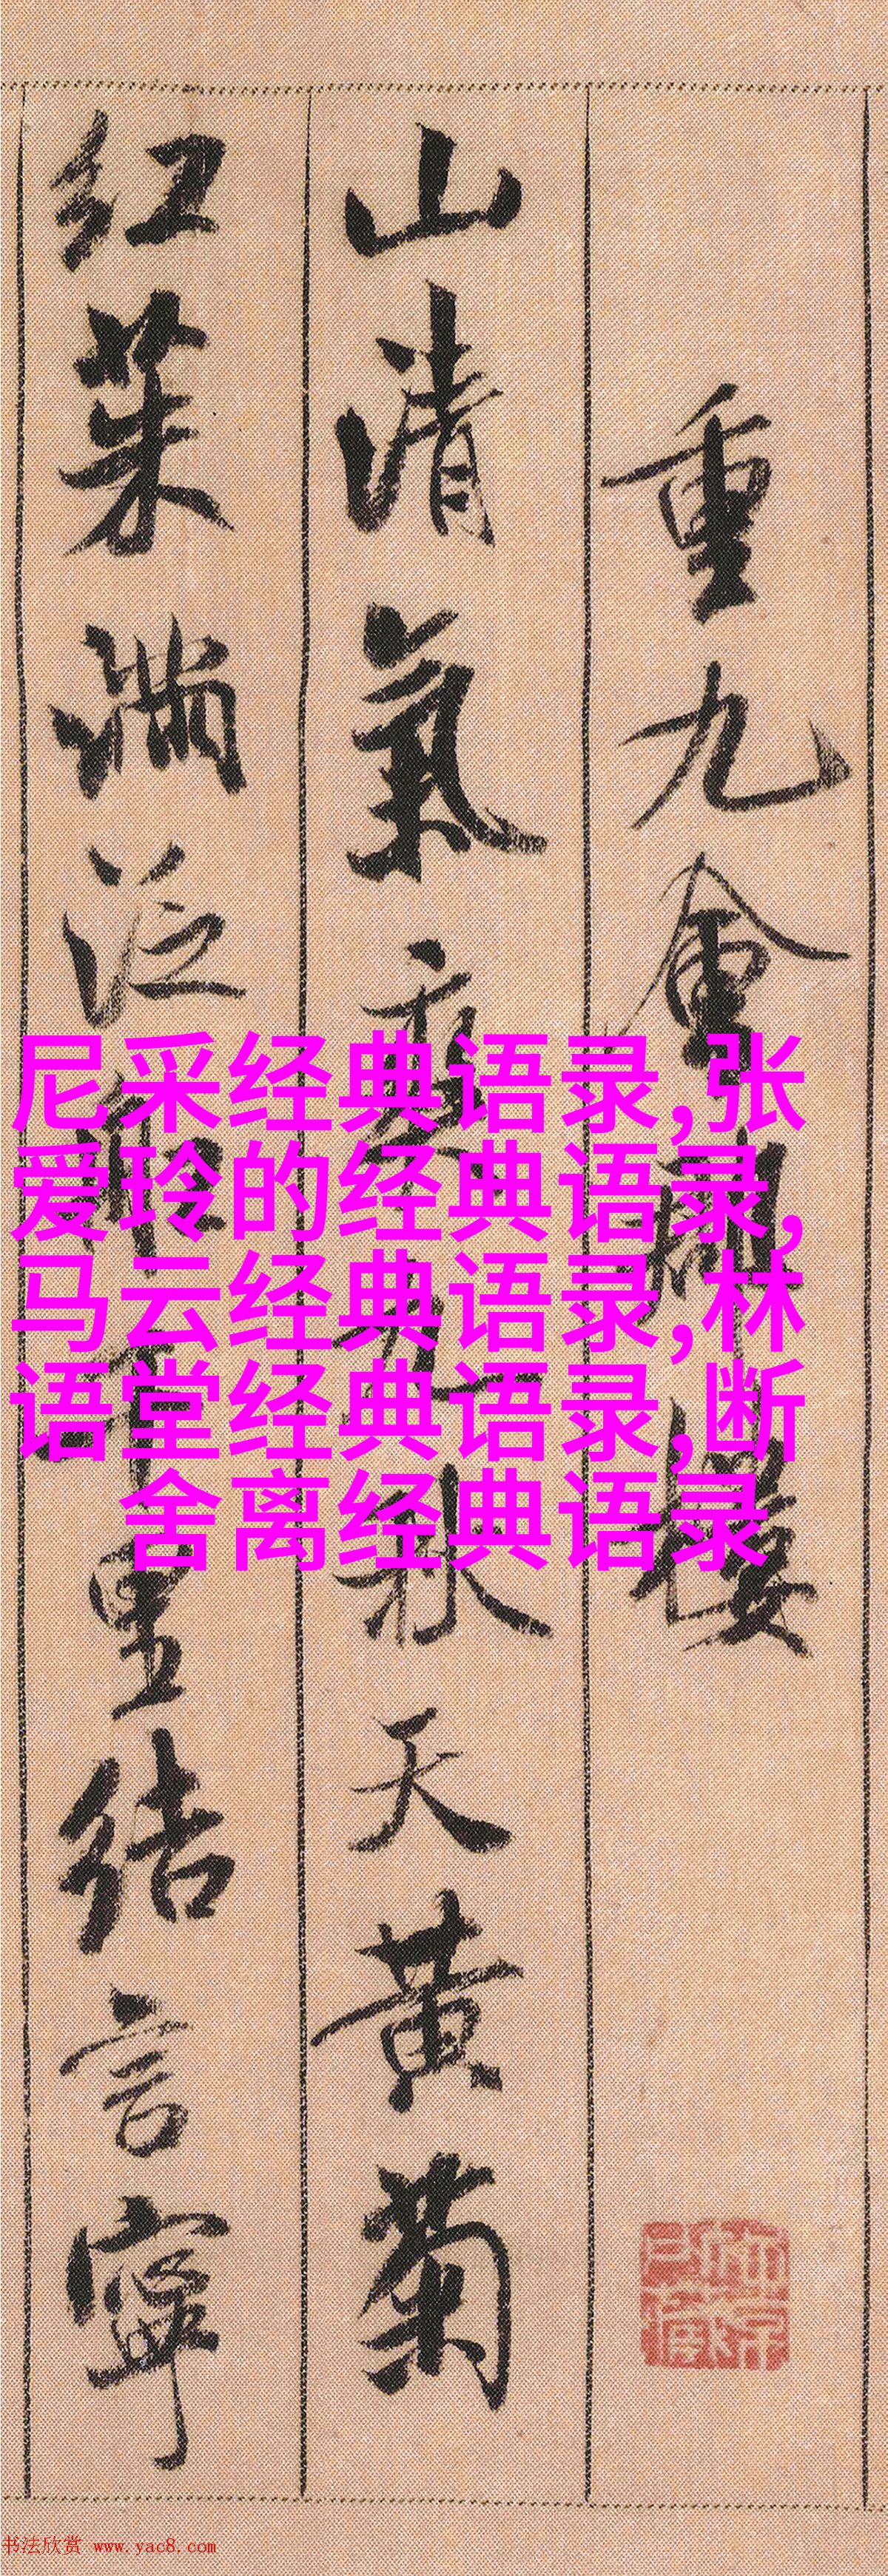 重九會郡樓
山清氣爽九秋天黃菊
紅茱滿泛船千里結言寧
尼采经典语录,张
爱玲的经典语录,
马云经典语录,林
语堂经典语录,断
舍离经典语录
书法欣赏 www.yac8.com